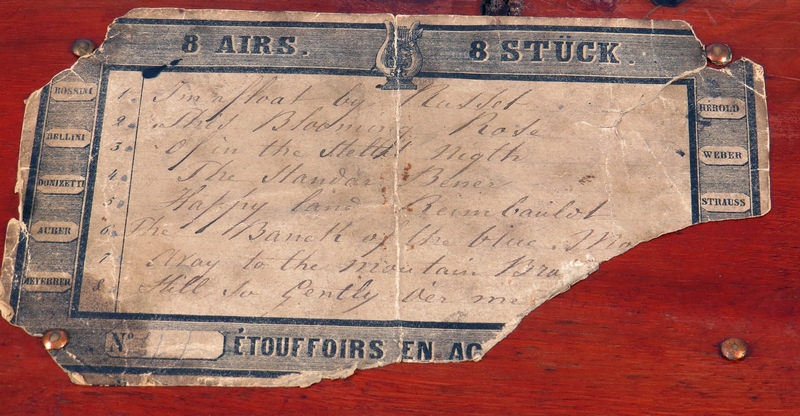 8 AIRS. 8 STÜCK.
ROSSINI
BELLINI
DONIZETTI
AUBER
MEYERBEER
1. I'm afloat by Russel
2. This Blooming Rose
3. Of in the Stelly Nigth
4. The Standar Bener
5. Happy land Reimbaulot
6. The Banck of the blue
7. Away to the mountain Bra
8. Still so Gently o'er me
HEROLD
WEBER
STRAUSS
Nº
ÉTOUFFOIRS EN AC